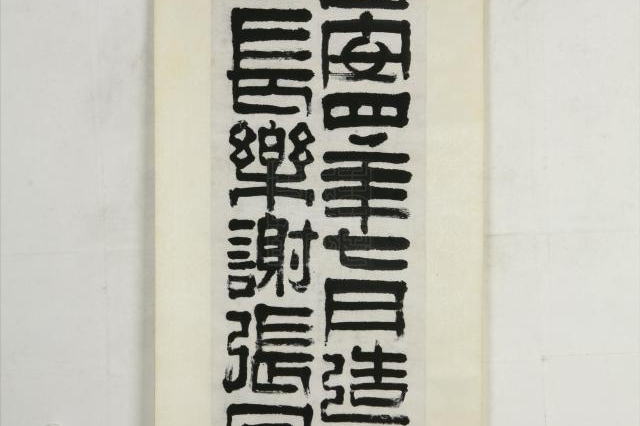 安四年七月造
長樂謝張